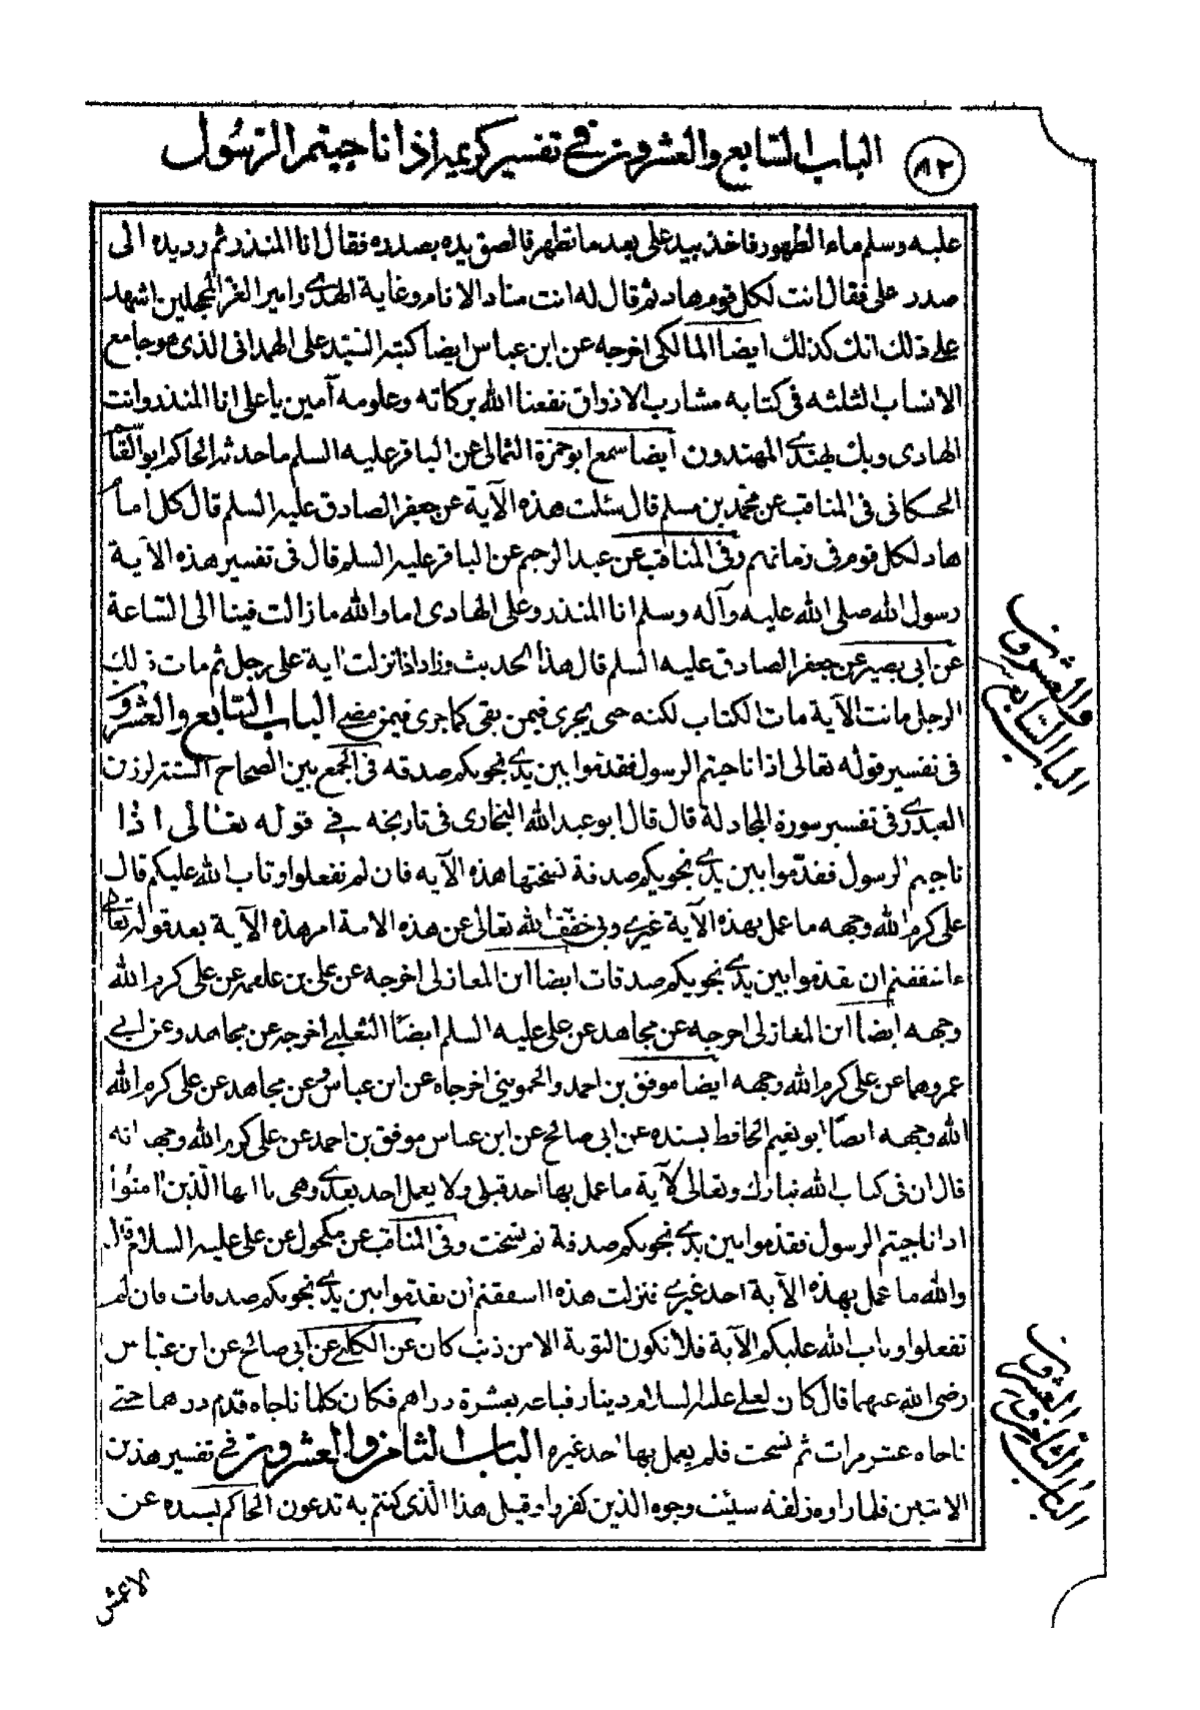 ٨٢
الباب السابع والعشرون في تفسير كريمه اذا ناجيتم الرسول
عليه وسلم ماء الطهور فاخذ بيد على بعد ما تطهر فالصق يده بصدره فقال انا المنذر ثم رد يده الى
صدر على فقال انت لكل قوم هاد ثم قال له انت منار الانام وغاية الهدى وامير الغر المحجلين اشهد
على ذلك انك كذلك ايضا المالكى اخرجه عن ابن عباس ايضا كتبه السيد على الهمدانى الذى هو جامع
الانساب الثلثه فى كتابه مشارب الاذواق نفعنا الله بركاته وعلومه آمين يا على انا المنذر وانت
الهادى وبك يهتدى المهتدون ايضا سمع ابو حمزة الثمالى عن الباقر عليه السلم ما حدثه الحاكم ابو القاسم
الحسكانى فى المناقب عن محمد بن مسلم قال سئلت هذه الآية عن جعفر الصادق عليه السلم قال كل امام
هاد لكل قوم فى زمانهم وفى المناقب عن عبد الرحيم عن الباقر عليه السلم قال فى تفسير هذه الآية
رسول الله صلى الله عليه وآله وسلم انا المنذر وعلى الهادى اما والله ما زالت فينا الى الساعة
عن ابى بصير عن جعفر الصادق عليه السلم قال هذا الحديث وزاد اذا نزلت اية على رجل ثم مات ذلك
الرجل مانت الآية مات الكتاب لكنه حى يجرى فيمن بقى كما جرى فيمن مضى الباب السابع والعشرون
فى تفسير قوله تعالى اذا ناجيتم الرسول فقدموا بين يدى نجويكم صدقه فى الجمع بين الصحاح الستة لرزين
العبدرى فى تفسير سورة المجادلة قال قال ابو عبد الله البخارى فى تاريخه فى قوله تعالى اذا
ناجيتم الرسول فقدموا بين يدى نجويكم صدقة نسختها هذه الآيه فان لم تفعلوا وتاب الله عليكم قال
على كرم الله وجهه ما عمل بهذه الآية غيرى وبى خفف الله تعالى عن هذه الامة امر هذه الآية بعد قوله تعالى
ءاشفقتم ان تقدموا بين يدى نجويكم صدقات ايضا ابن المغازلى اخرجه عن على بن علقمه عن على كرم الله
وجهه ايضا ابن المغازلى اخرجه عن مجاهد عن على عليه السلم ايضا الثعلبى اخرجه عن مجاهد وعن ابى
عمر وهما عن على كرم الله وجهه ايضا موفق بن احمد والحموينى اخرجاه عن ابن عباس وعن مجاهد عن على كرم الله
الله وجهه ايضا ابو نعيم الحافظ بسنده عن ابى صالح عن ابن عباس موفق بن احمد عن على كرم الله وجهه انه
قال ان فى كتاب الله تبارك وتعالى لآية ما عمل بها احد قبلى ولا يعمل احد بعدى وهى يا ايها الذين امنوا
اذا ناجيتم الرسول فقدموا بين يدى نجويكم صدقة ثم نسخت وفى المناقب عن مكحول عن على عليه السلام قال
والله ما عمل بهذه الآية احد غيرى فنزلت هذه ااشفقتم ان تقدموا بين يدى نجويكم صدقات فان لم
تفعلوا وتاب الله عليكم الآية فلا تكون التوبة الا من ذنب كان عن الكلبى عن ابى صالح عن ابن عباس
رضى الله عنهما قال كان لعلى عليه السلام دينار فباعه بعشرة دراهم فكان كلما ناجاه قدم درهما حتى
ناجاه عشر مرات ثم نسخت فلم يعمل بها احد غيره الباب الثامن والعشرون فى تفسير هذين
الايتين فلما راوه زلفة سيئت وجوه الذين كفروا وقيل هذا الذى كنتم به تدعون الحاكم بسنده عن
الاعمش
الباب السابع والعشرون
الباب الثامن والعشرون